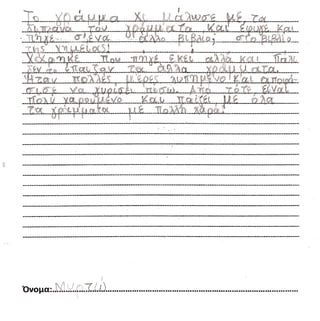 Το γράμμα Χι μάλωσε με τα
διπλανά του γράμματα και έφυγε και
πήγε σ'ένα άλλο βιβλίο, στο βιβλίο
της χημείας!
Χάρηκε που πήγε εκεί αλλά και πάλι
δεν το έπαιζαν τα άλλα γράμματα.
Ήταν πολλές μέρες λυπημένο και αποφά-
σισε να γυρίσει πίσω. Από τότε είναι
πολύ χαρούμενο και παίζει με όλα
τα γράμματα με πολλή χαρά!
Όνομα: Μυρτώ